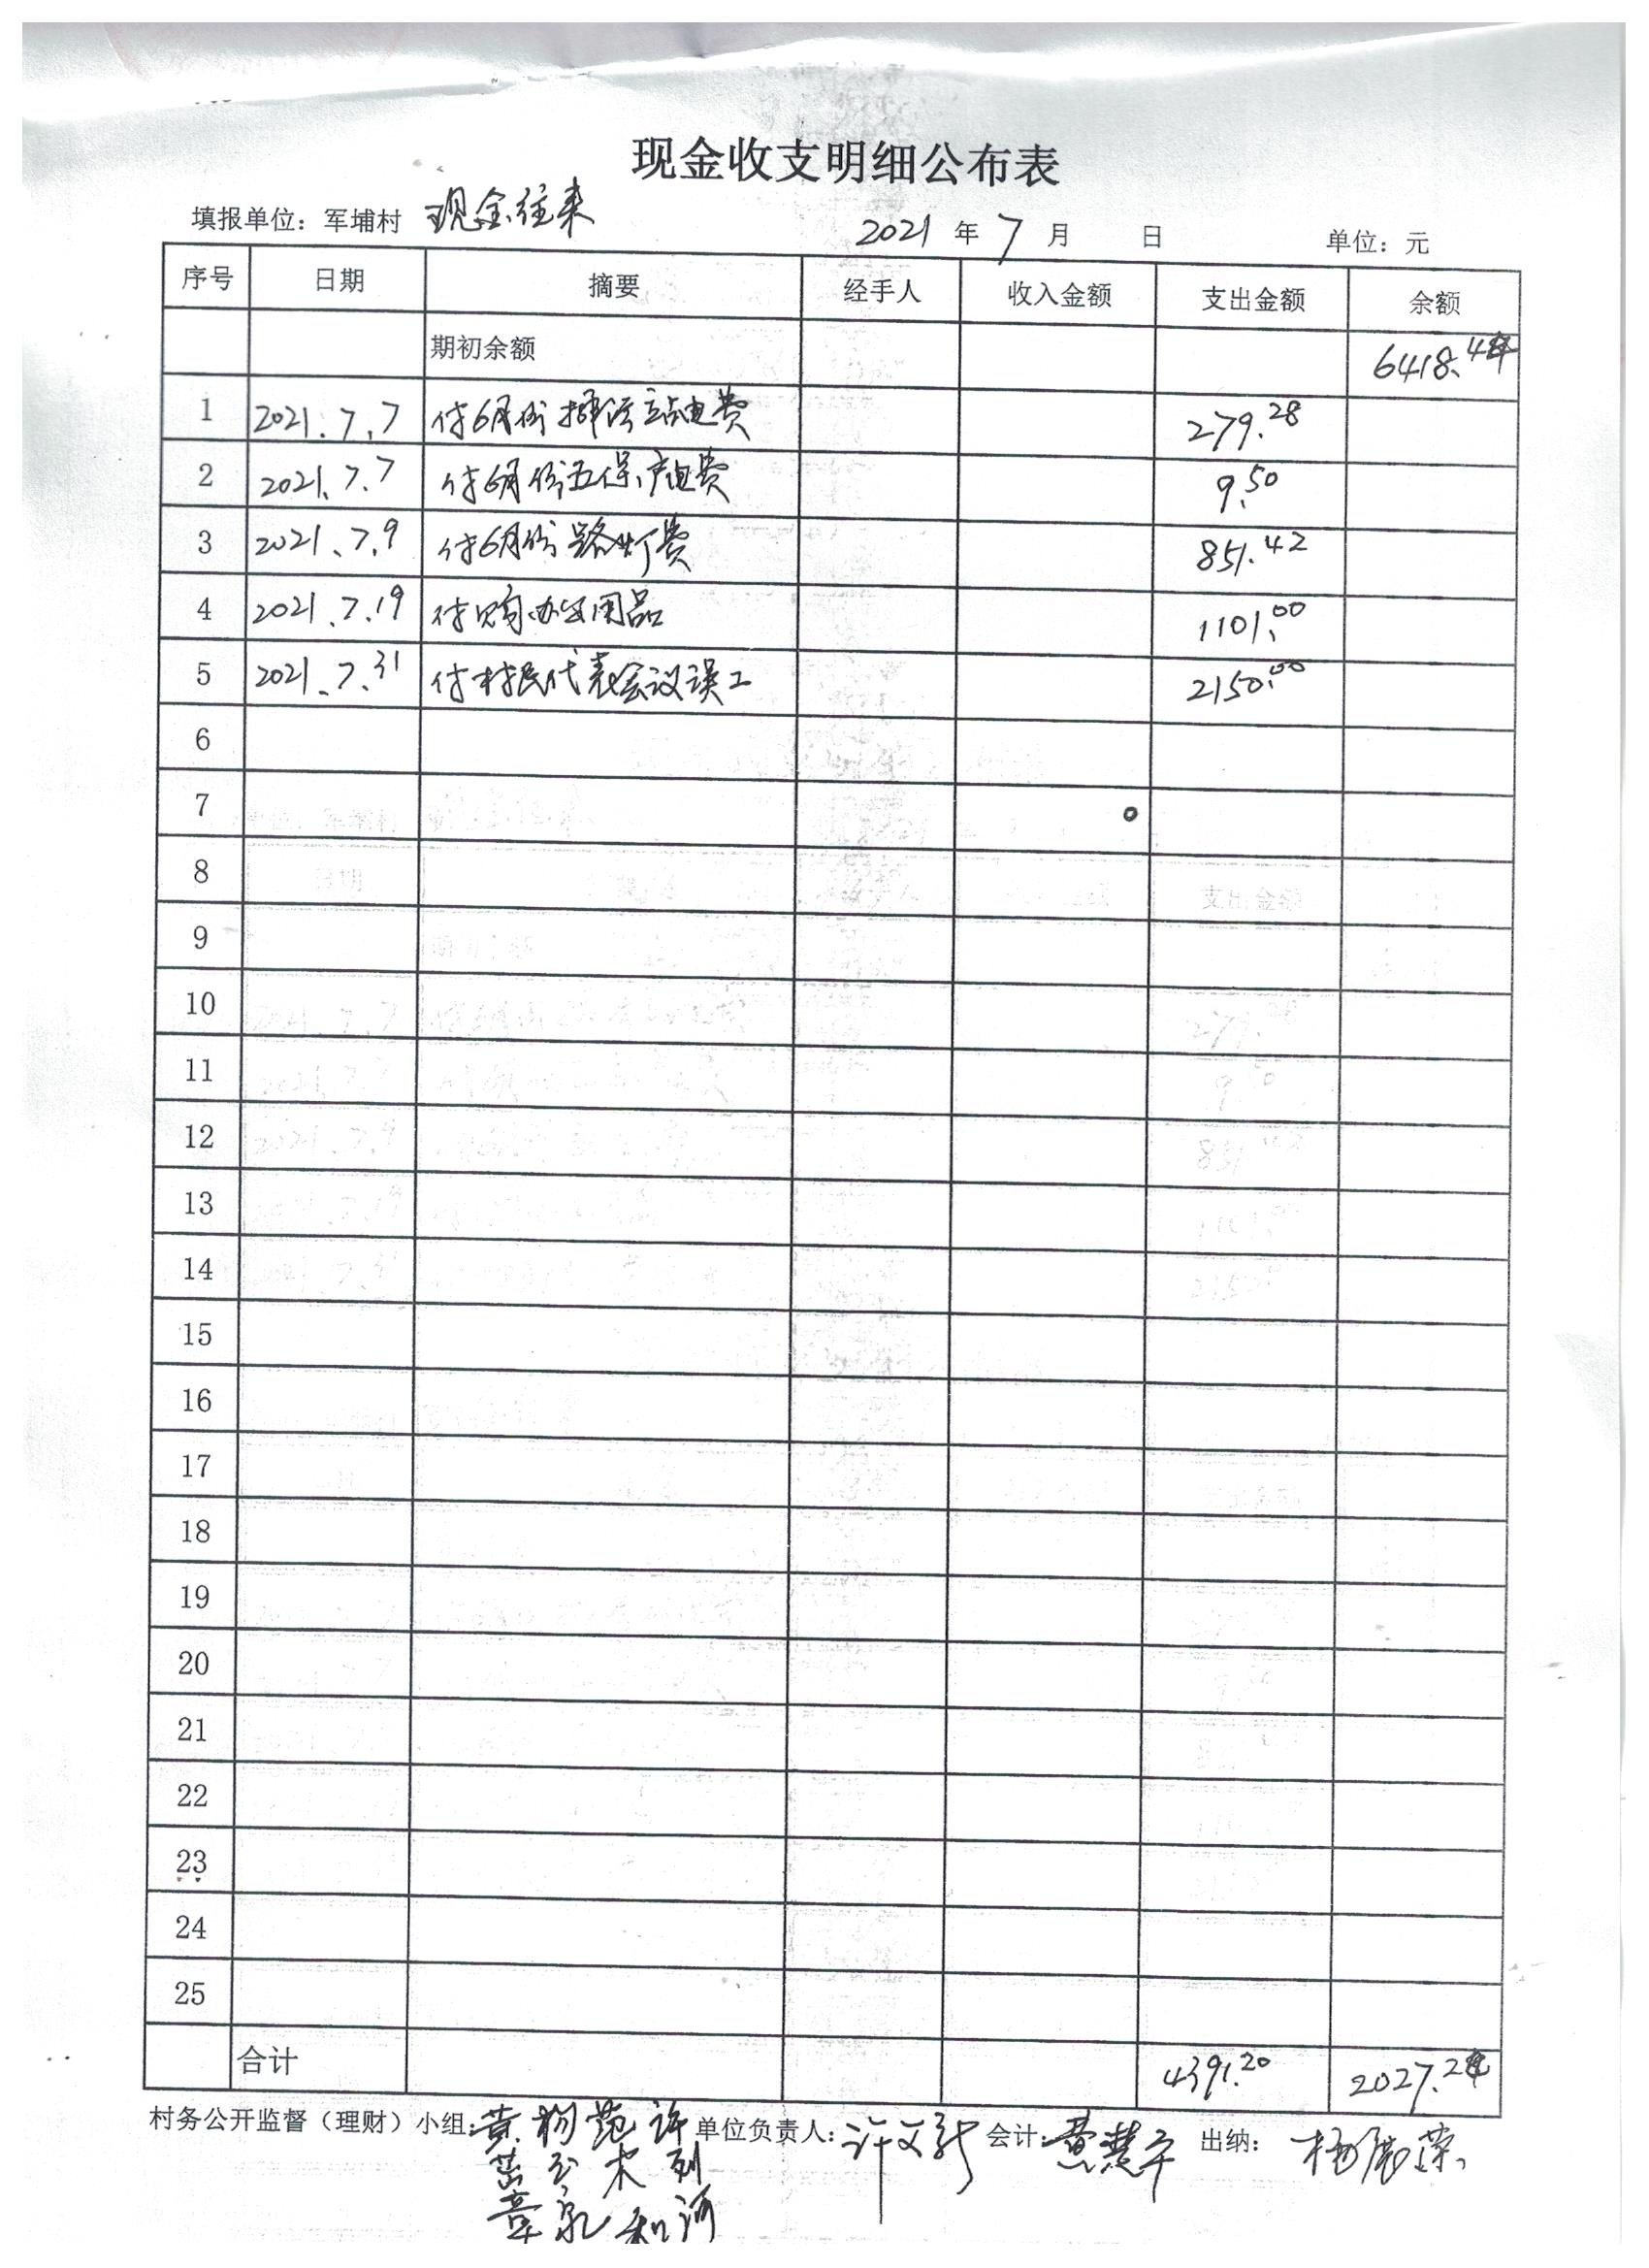 现金收支明细公布表
填报单位：军埔村 现金往来 2021 年 7 月 日 单位：元
序号 日期 摘要 经手人 收入金额 支出金额 余额
期初余额 6418.4
1 2021.7.7 付6月份排涝站电费 279.28
2 2021.7.7 付6月份五保户电费 9.50
3 2021.7.9 付6月份路灯费 851.42
4 2021.7.19 付购办公用品 1101.00
5 2021.7.31 付村民代表会议误工 2150.00
6
7
8
9
10
11
12
13
14
15
16
17
18
19
20
21
22
23
24
25
合计 4391.20 2027.2
村务公开监督（理财）小组： 单位负责人： 会计：黄慧 出纳：